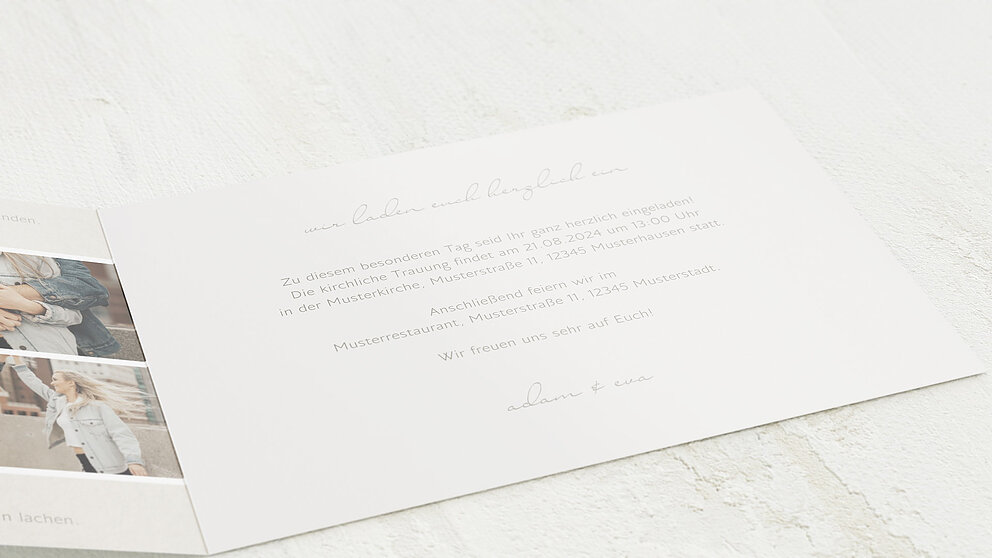 nden.
n lachen.
wir laden euch herzlich ein
Zu diesem besonderen Tag seid Ihr ganz herzlich eingeladen!
Die kirchliche Trauung findet am 21.08.2024 um 13:00 Uhr
in der Musterkirche, Musterstraße 11, 12345 Musterhausen statt.
Anschließend feiern wir im
Musterrestaurant, Musterstraße 11, 12345 Musterstadt.
Wir freuen uns sehr auf Euch!
adam & eva